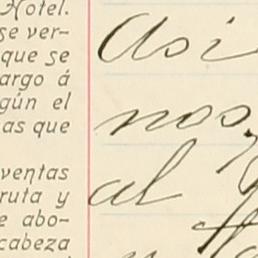 Hotel.
se ver-
que se
argo á
gún el
as que
ventas
ruta y
e abo-
cabeza
Asi
nos,
al